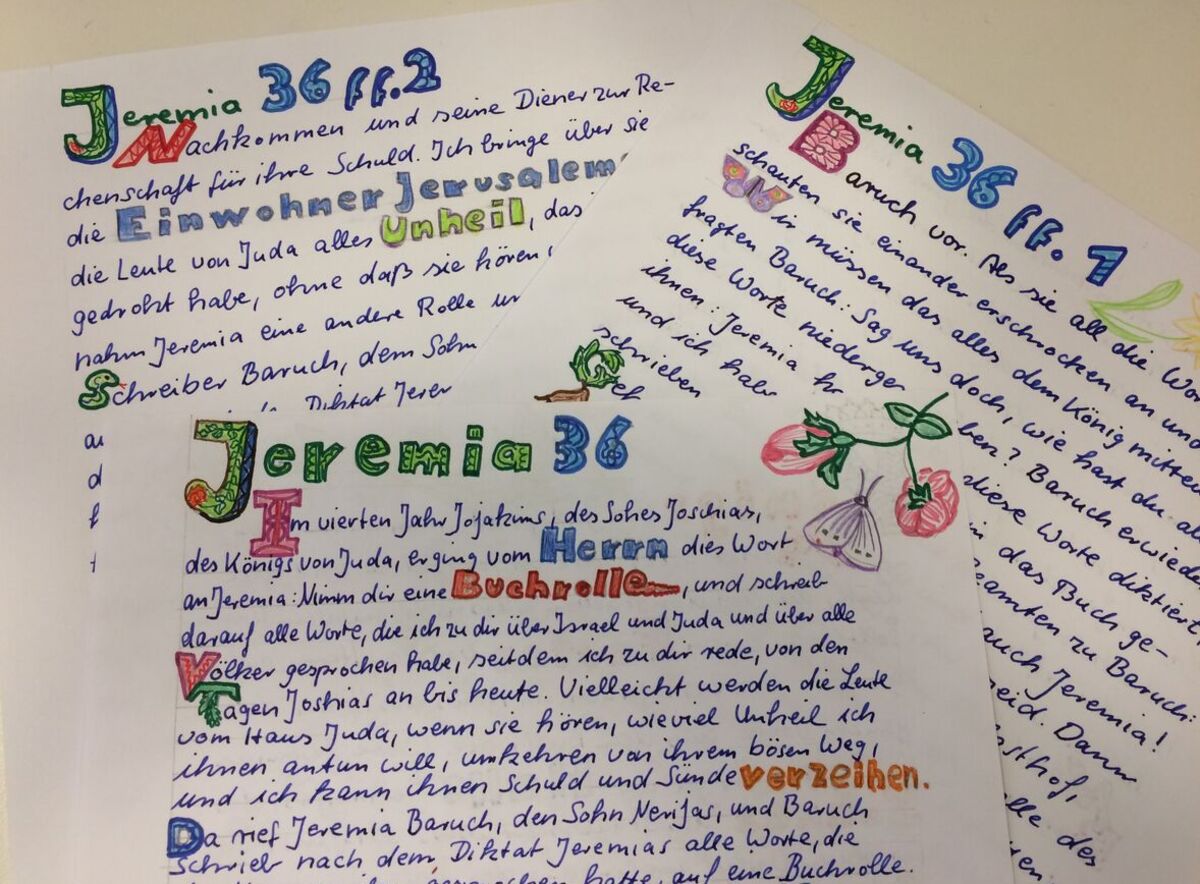 Jeremia 36 ff. 2
Nachkommen und seine Diener zur Re-
chenschaft für ihre Schuld. Ich bringe über sie
die Einwohner Jerusalem
die Leute von Juda alles Unheil, das
gedroht habe, ohne daß sie hören
nahm Jeremia eine andere Rolle
Schreiber Baruch, dem Sohn
Diktat Jerer
Jeremia 36 ff. 1
Baruch vor. Als sie all die Wor
schauten sie einander erschrocken an und
Wir müssen das alles dem König mitteil
fragten Baruch: Sag uns doch, wie hast du al
diese Worte niederge ben? Baruch erwiede
ihnen: Jeremia diese Worte diktiert
und ich habe in das Buch ge-
schrieben eamten zu Baruch:
auch Jeremia!
eid. Dann
lle des
Jeremia 36
Im vierten Jahr Jojakims, des Sohes Joschias,
des Königs von Juda, erging vom Herrn dies Wort
an Jeremia: Nimm dir eine Buchrolle, und schreib
darauf alle Worte, die ich zu dir über Israel und Juda und über alle
Völker gesprochen habe, seitdem ich zu dir rede, von den
Tagen Joshias an bis heute. Vielleicht werden die Leute
vom Haus Juda, wenn sie hören, wieviel Unheil ich
ihnen antun will, umkehren von ihrem bösen Weg,
und ich kann ihnen Schuld und Sünde verzeihen.
Da rief Jeremia Baruch, den Sohn Nerijas, und Baruch
schrieb nach dem Diktat Jeremias alle Worte, die
hatte, auf eine Buchrolle.